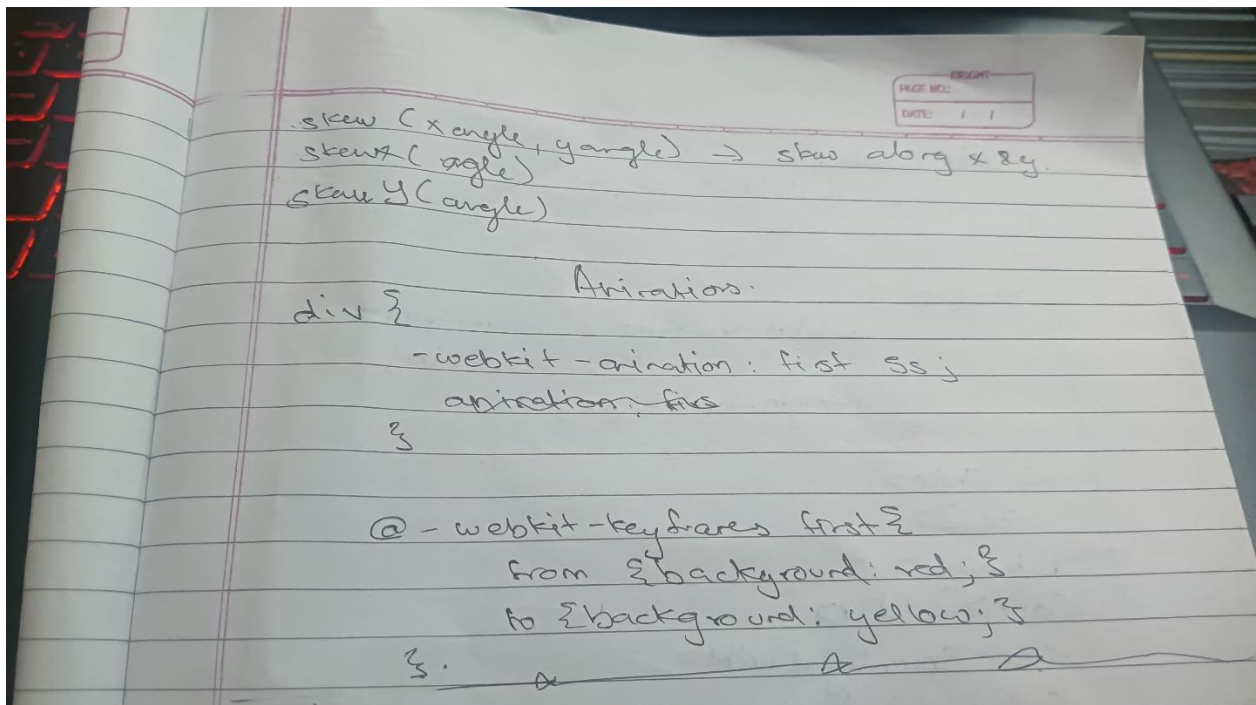 BRIGHT
PAGE NO.:
DATE: / /
skew (x angle, yangle) → skew along x & y.
skewX( agle)
skew Y (angle)
Animations.
div {
-webkit-animation: first 5s;
animation: firs
}
@-webkit-keyframes first {
from {background: red; }
to {background: yellow; }
}.